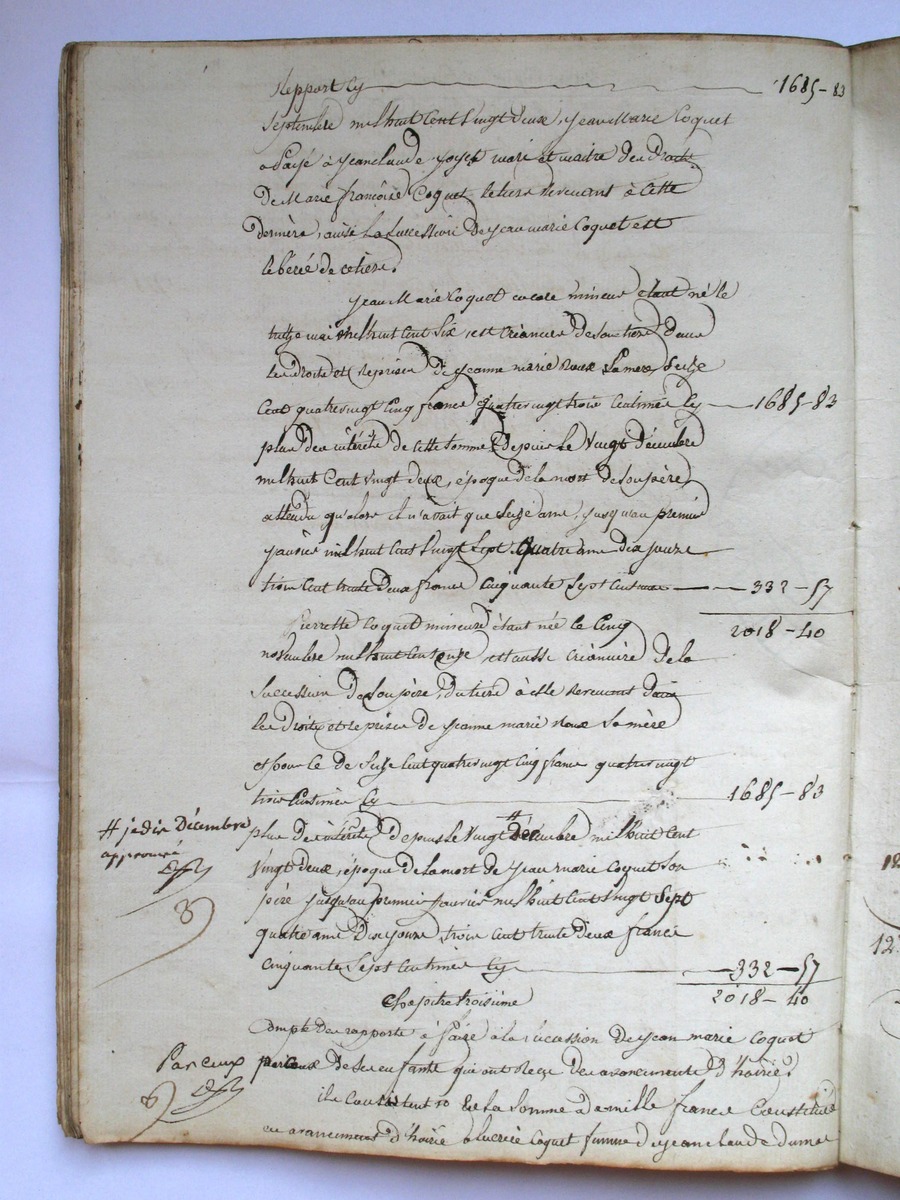 Report cy 1685-83
Septembre mil huit cent vingt deux, Jean Marie Coquet
a payé à Jean Claude mari et maitre des droits
De Marie françoise Coquet le tiers revenant à cette
dernière, ainsi la succession de Jean marie Coquet est
libérée de ce tiers.
Jean Marie Coquet encore mineur étant né le
mai mil huit cent six, est créancier de son tiers dans
les droits et reprises de Jeanne marie Roux sa mère, Seize
Cent quatre vingt cinq francs quatre vingt trois centimes cy 1685-83
plus des intérêts de cette somme depuis le vingt Décembre
mil huit cent vingt deux, époque de la mort de son père,
attendu qu'alors il n'avait que seize ans, jusqu'au premier
janvier mil huit cent vingt sept quatre ans dix jours
trois cent trente deux francs cinquante sept centimes 332-57
2018-40
Pierrette Coquet mineure étant née le cinq
novembre mil huit cent onze est aussi créancière de la
succession de son père, du tiers à elle revenant dans
les droits et reprises de Jeanne marie Roux sa mère
et pour ce de seize cent quatre vingt cinq francs quatre vingt
trois centimes cy 1685-83
# je dis Décembre
approuvé
plus des intérêts depuis le vingt # Décembre mil huit cent
vingt deux, époque de la mort de Jean marie Coquet son
père jusqu'au premier janvier mil huit cent vingt sept
quatre ans dix jours, trois cent trente deux francs
cinquante sept centimes cy 332-57
2018-40
Chapitre troisième
Compte des rapports à faire à la succession de Jean marie Coquet
Par ceux
par ceux de ses enfants qui ont reçu des avancements d'hoirie.
ils consistent 1o En la somme de mille francs constituée
en avancement d'hoirie à Coquet femme de Jean Claude